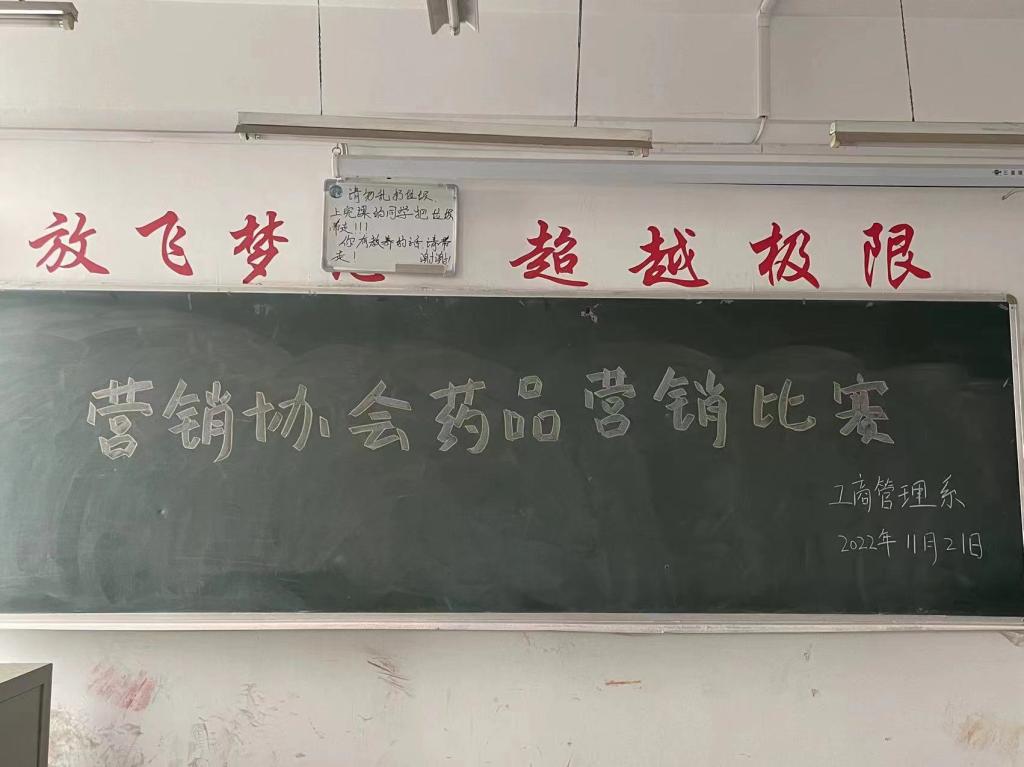 请勿乱扔垃圾.
上完课的同学把垃圾
带走!!!
你有放养的话请带
走! 谢谢!
放飞梦 超越极限
营销协会药品营销比赛
工商管理系
2022年11月21日